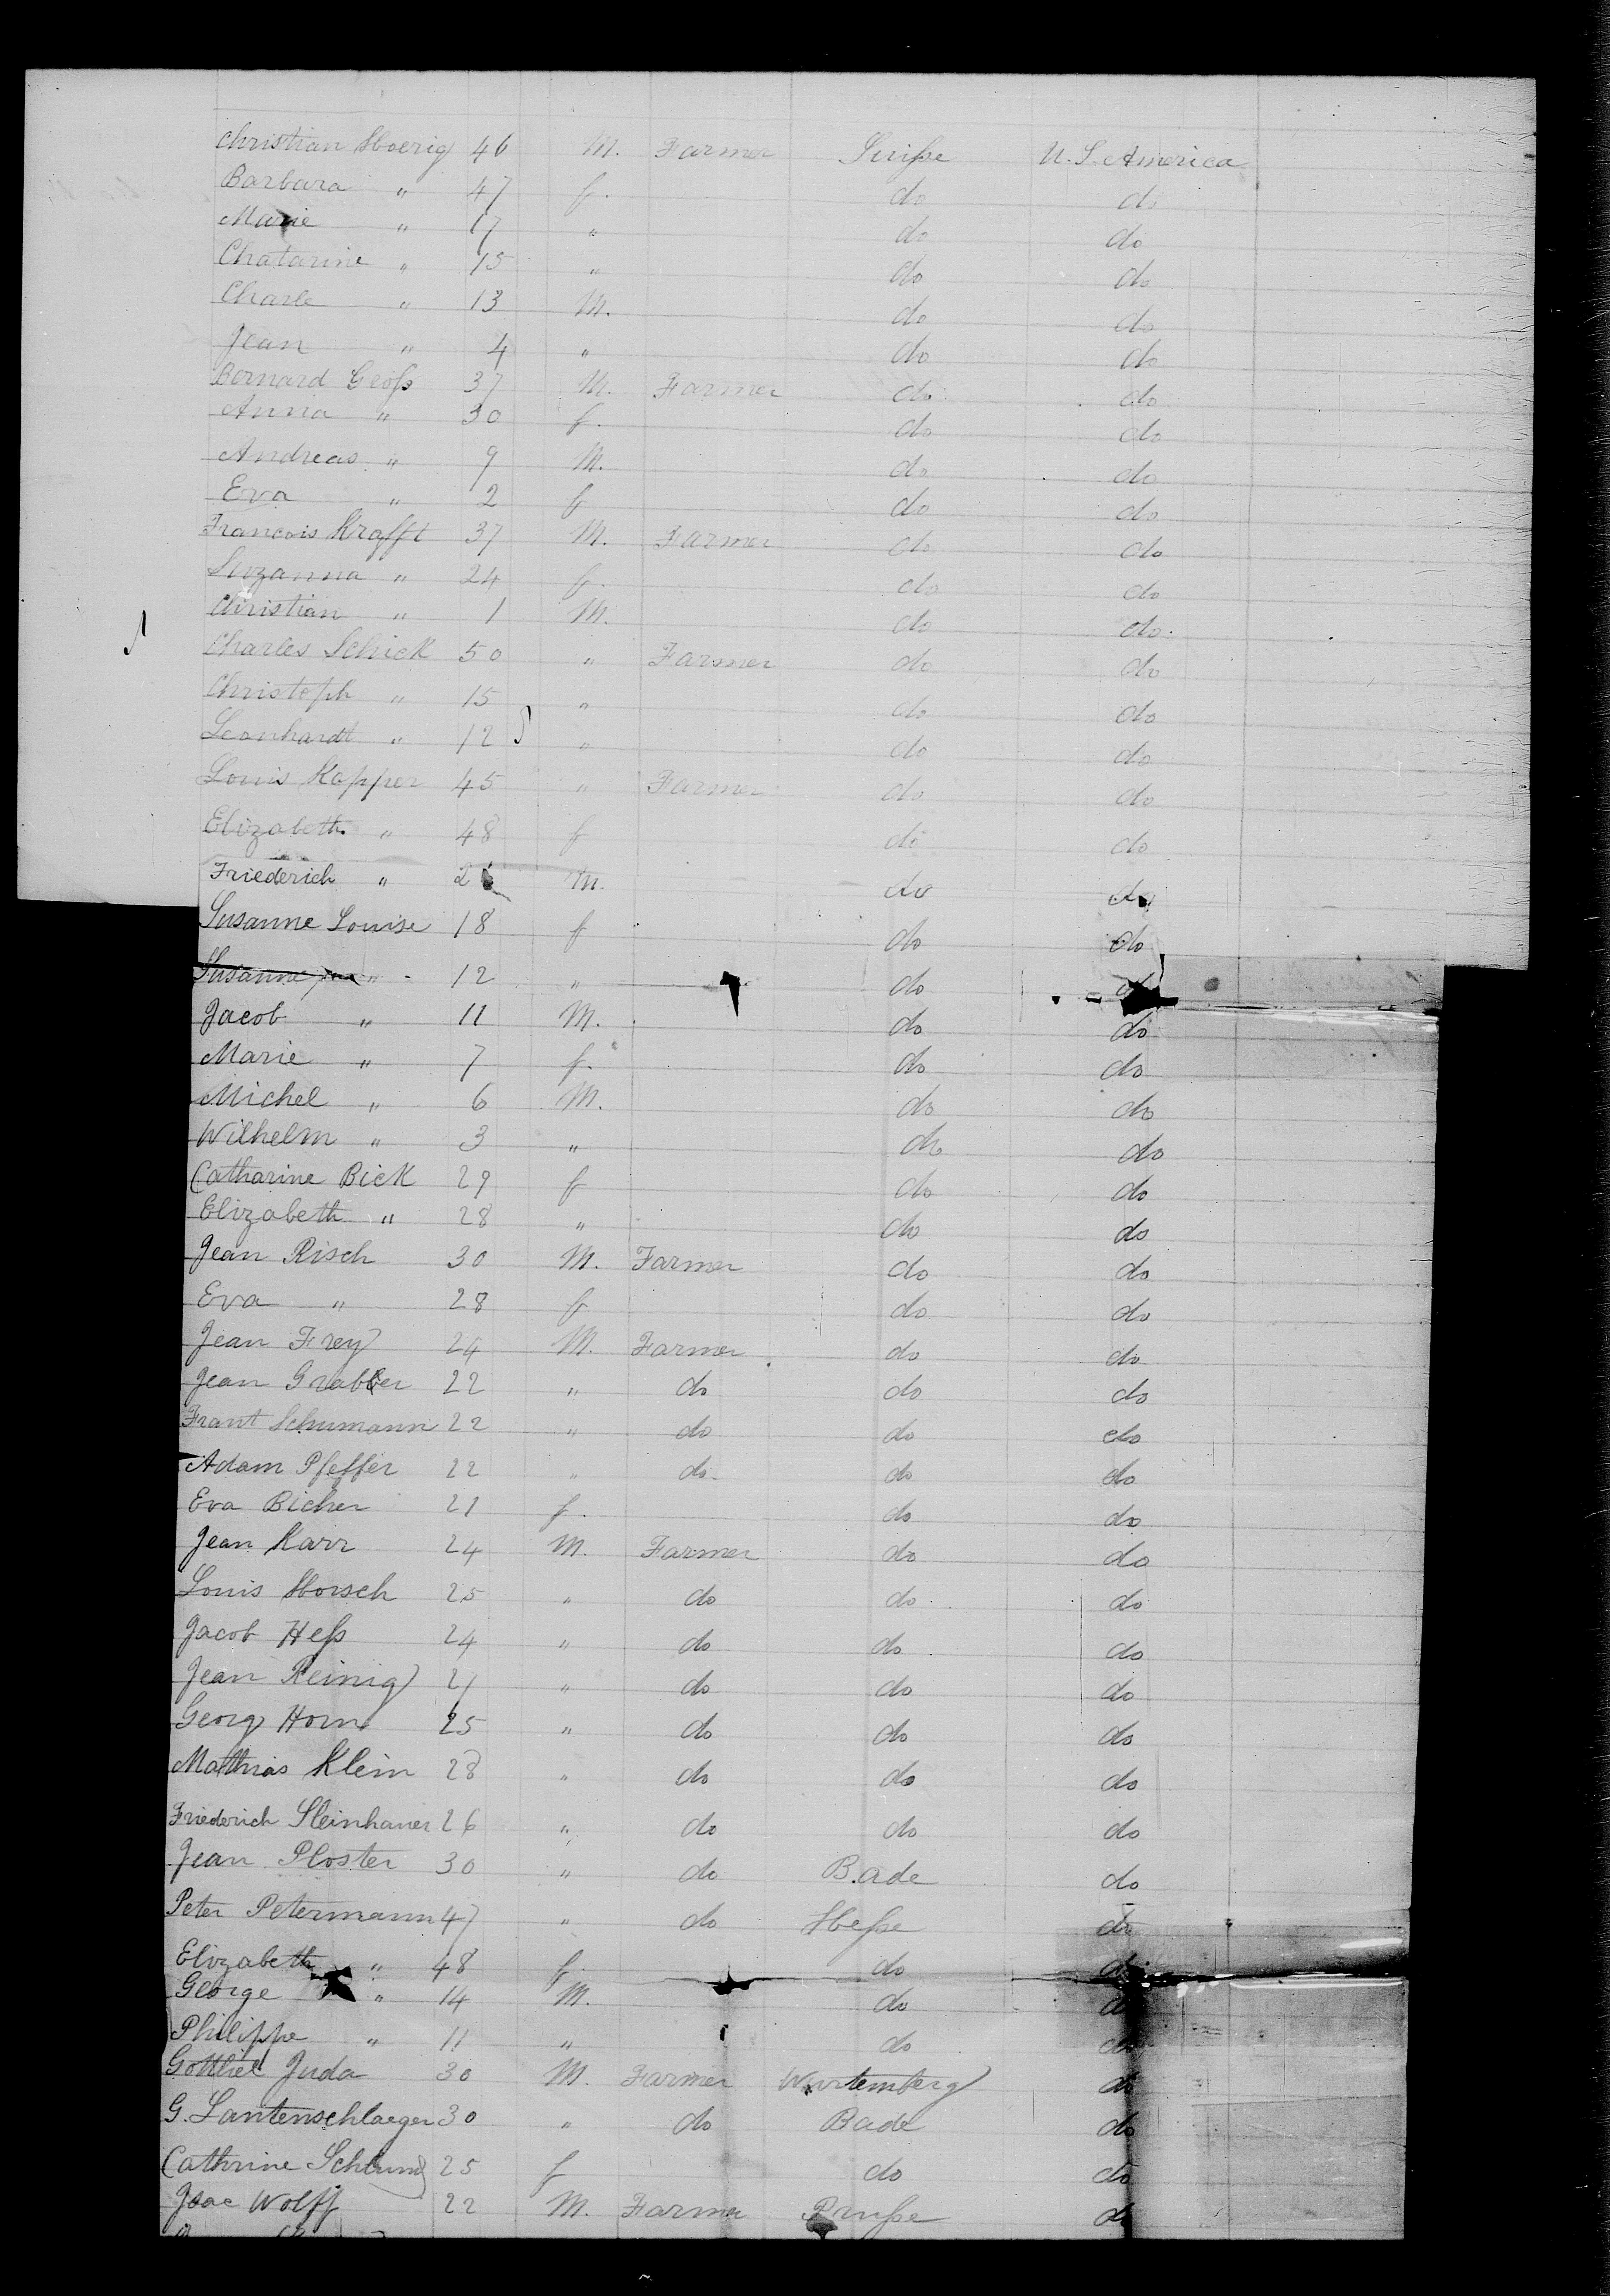 Christian Hoerig 46 M. Farmer Suiße U.S. America
Barbara " 47 f. do do
Marie " 17 " do do
Chatarine " 15 " do do
Charle " 13 M. do do
Jean " 4 " do do
Bernard Geoß 37 M. Farmer do do
Anna " 30 f. do do
Andreas " 9 M. do do
Eva " 2 f do do
Francois Krafft 37 M. Farmer do do
Suzanna " 24 f. do do
Christian " 1 M. do do.
Charles Schick 50 " Farmer do do
Christoph " 15 " do do
Leonhardt " 12 " do do
Louis Kopper 45 " Farmer do do
Elizabeth " 48 f do do
Friederich " 2 M. do do
Susanne Louise 18 f do do
Susanne " 12 " do do
Jacob " 11 M. do do
Marie " 7 f. do do
Michel " 6 M. do do
Wilhelm " 3 " do do
Catharine Bick 29 f do do
Elizabeth " 28 " do do
Jean Risch 30 M. Farmer do do
Eva " 28 f do do
Jean Frey 24 M. Farmer do do
Jean Grabber 22 " do do do
Frant Schumann 22 " do do do
Adam Pfeffer 22 " do do do
Eva Bicher 21 f. do do
Jean Karr 24 M. Farmer do do
Louis Horsch 25 " do do do
Jacob Heß 24 " do do do
Jean Reinig 21 " do do do
Georg Horn 25 " do do do
Mathias Klein 28 " do do do
Friederich Steinhauer 26 " do do do
Jean Ploster 30 " do Bade do
Peter Petermann 47 " do Heße do
Elizabeth " 48 f do do
George " 14 M. do do
Philippe " 11 " do do
Gottlieb Juda 30 M. Farmer Wurtemberg do
G. Lantenschlaeger 30 " do Bade do
Cathrine Schlund 25 f do do
Isac Wolff 22 M. Farmer Pruße do